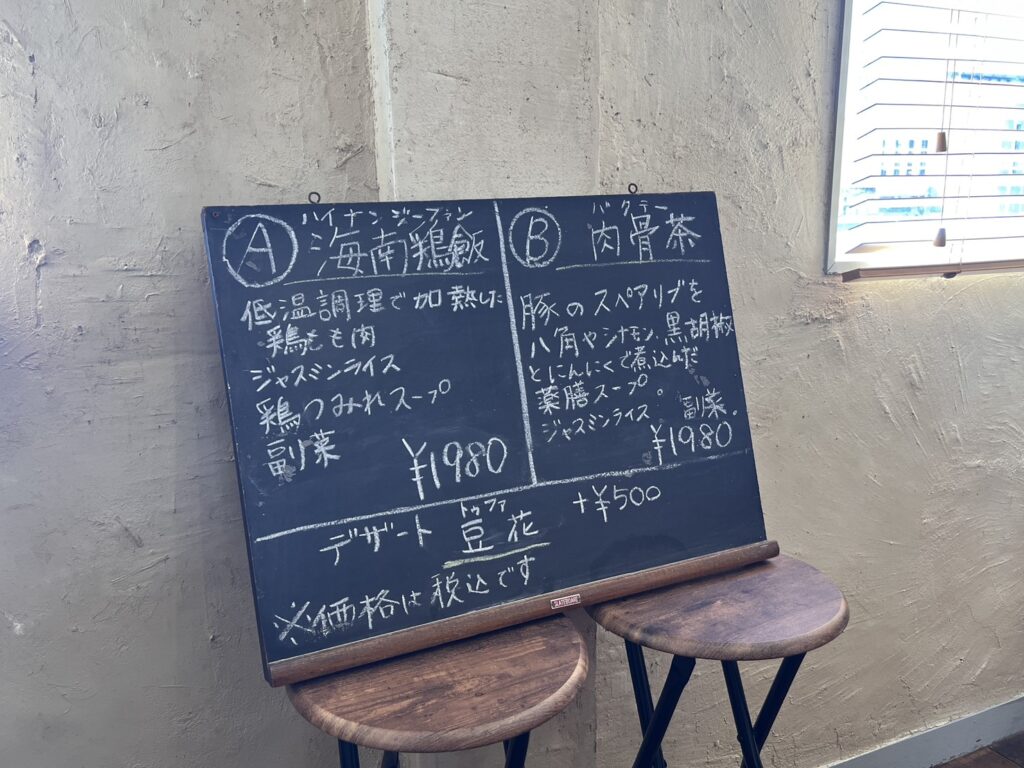 A
ハイナンジーファン
海南鶏飯
低温調理で加熱した
鶏もも肉
ジャスミンライス
鶏つみれスープ
副菜
¥1980
B
バクテー
肉骨茶
豚のスペアリブを
八角やシナモン、黒胡椒
とにんにくで煮込んだ
薬膳スープ。
ジャスミンライス。 副菜。
¥1980
デザート 豆花 +¥500
トゥファ
※価格は税込です